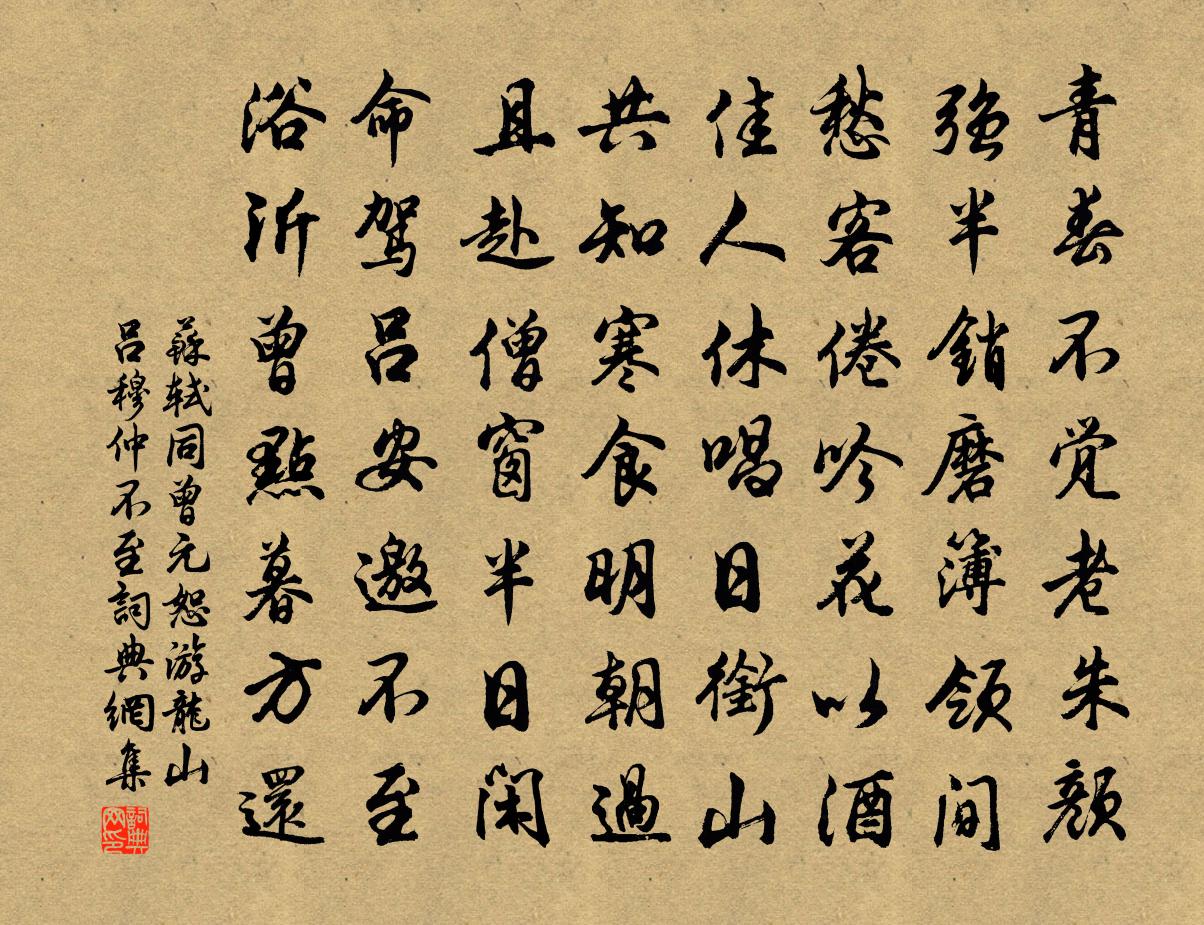 青春不觉老朱颜
强半銷磨簿領间
愁客倦吟花以酒
佳人休唱日銜山
共知寒食明朝過
且赴僧窗半日闲
命驾吕安邀不至
浴沂曾點暮方還
蘇軾同曾元恕游龍山
吕穆仲不至詞典網集
詞典网印